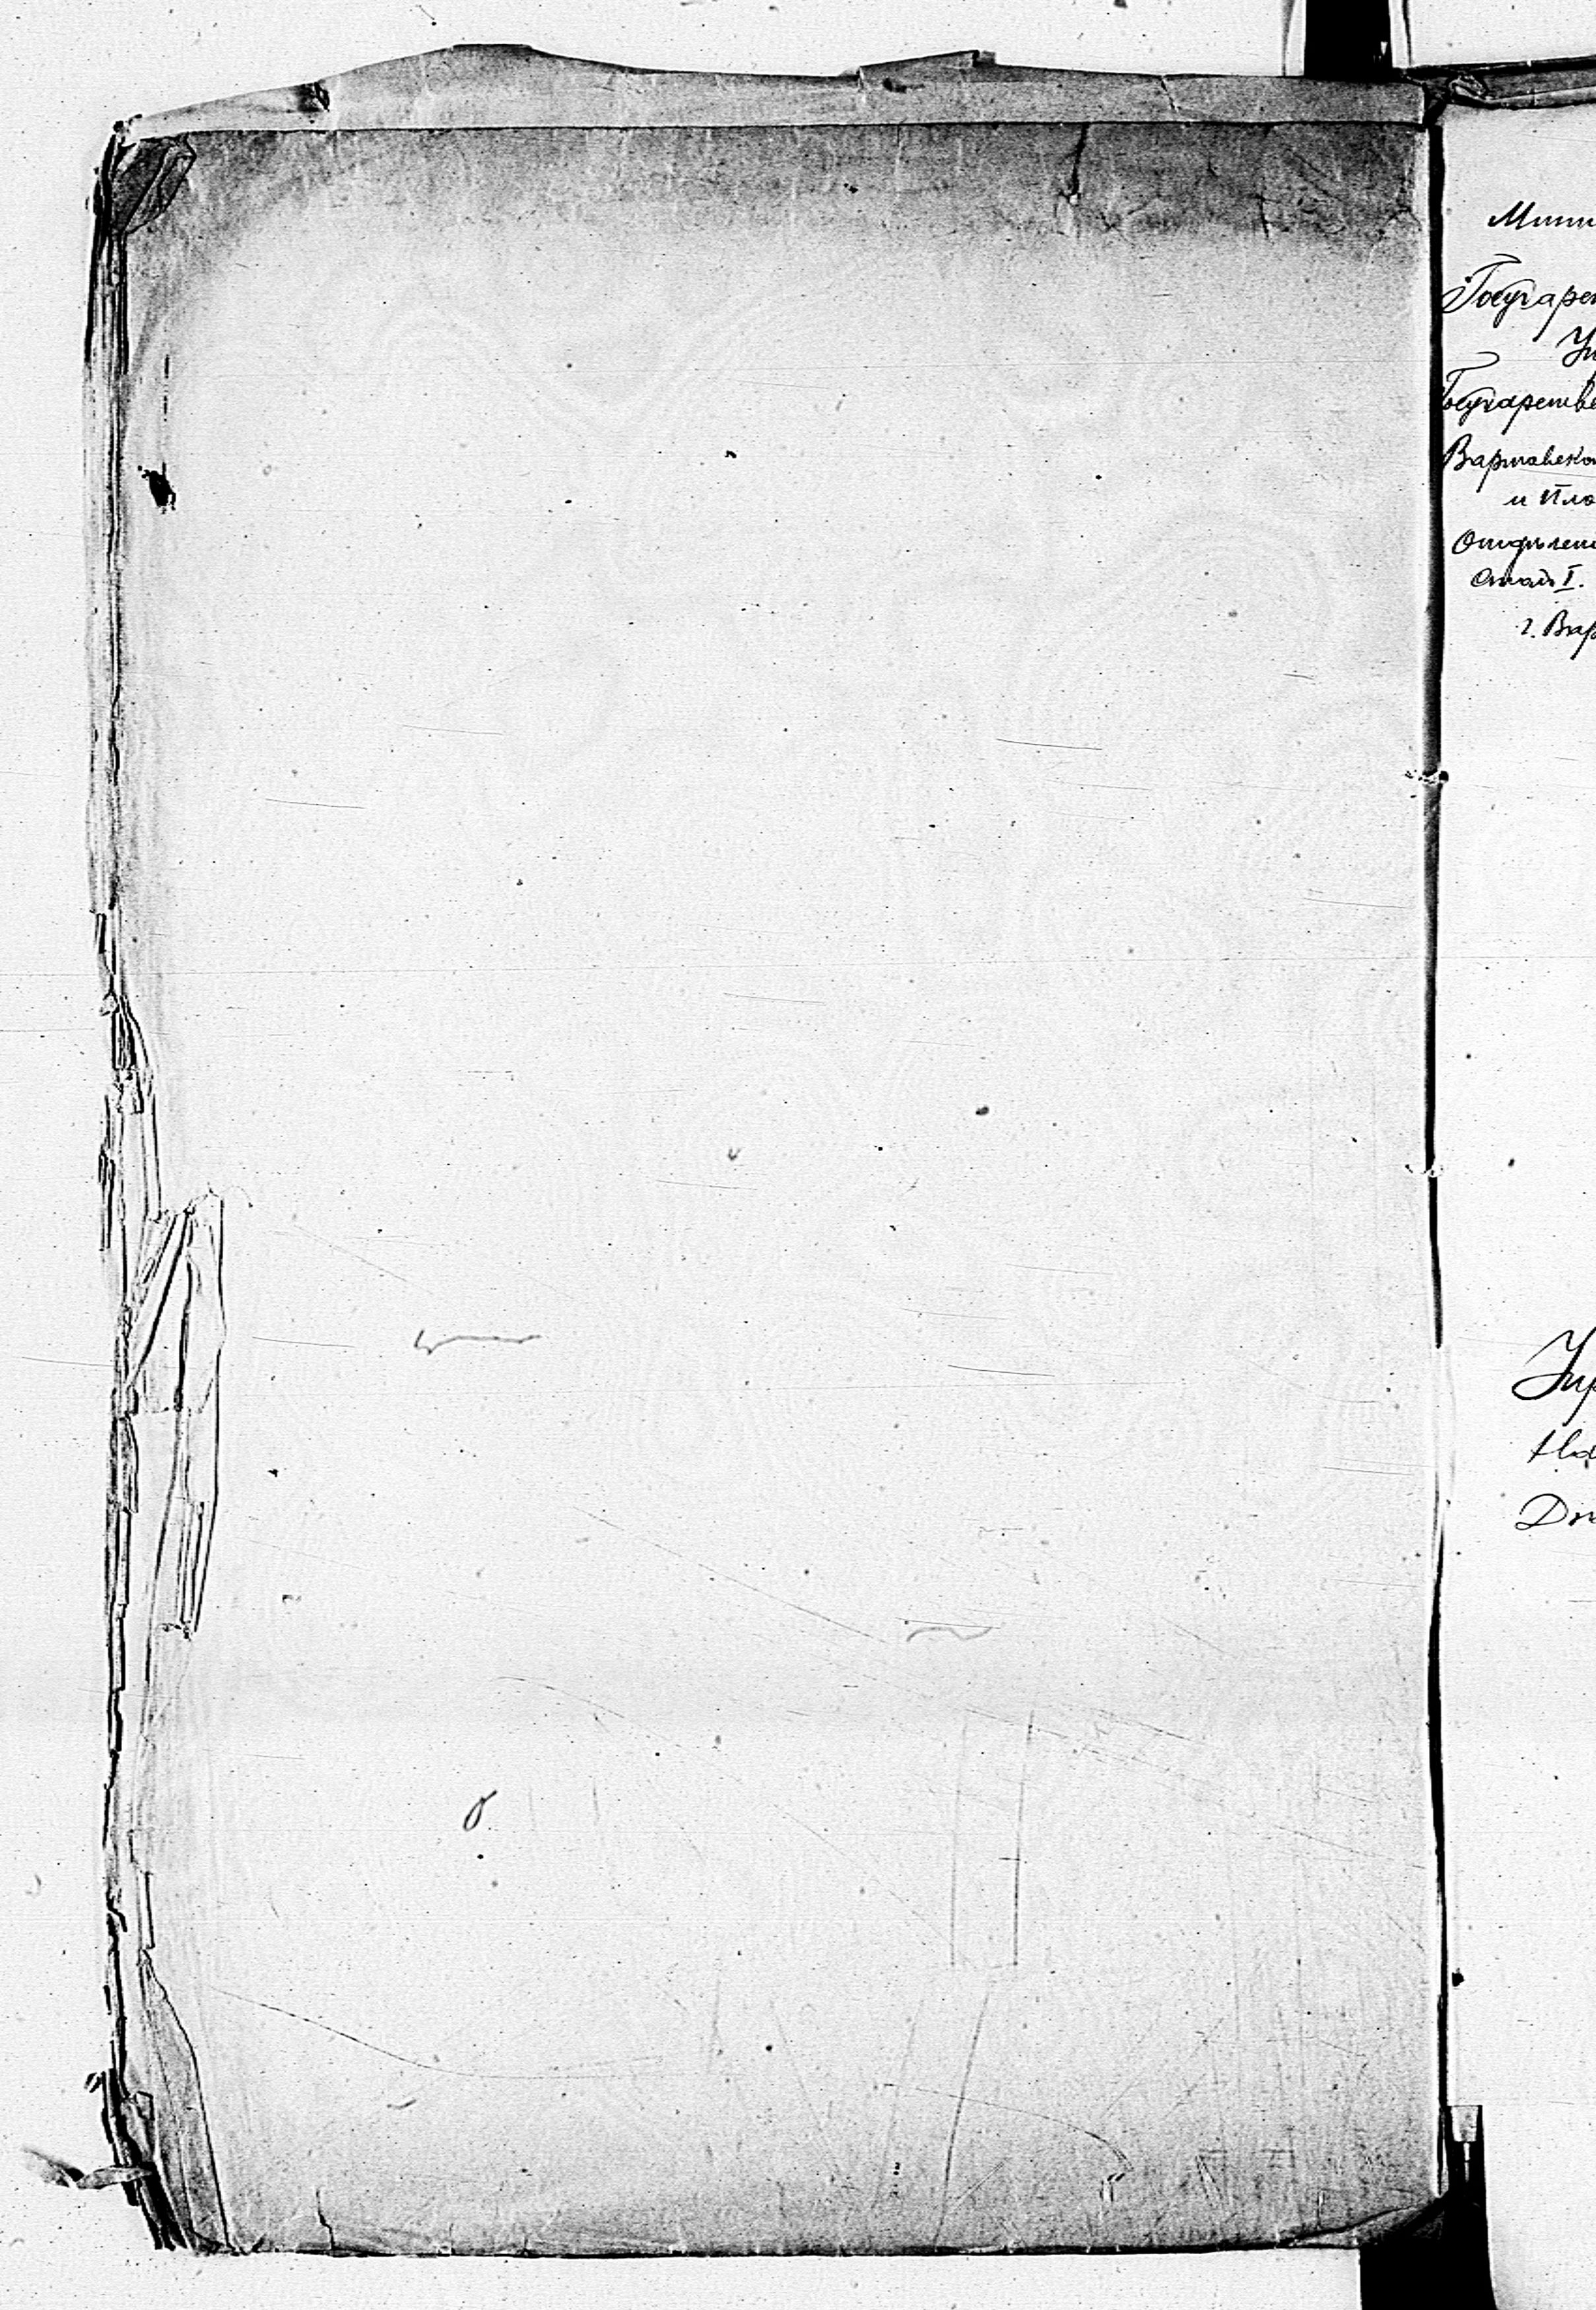 Мини
Государст
Уп
Государстве
Варшавско
и Пло
Отдѣлені
Столъ I.
г. Вар
Упр
На